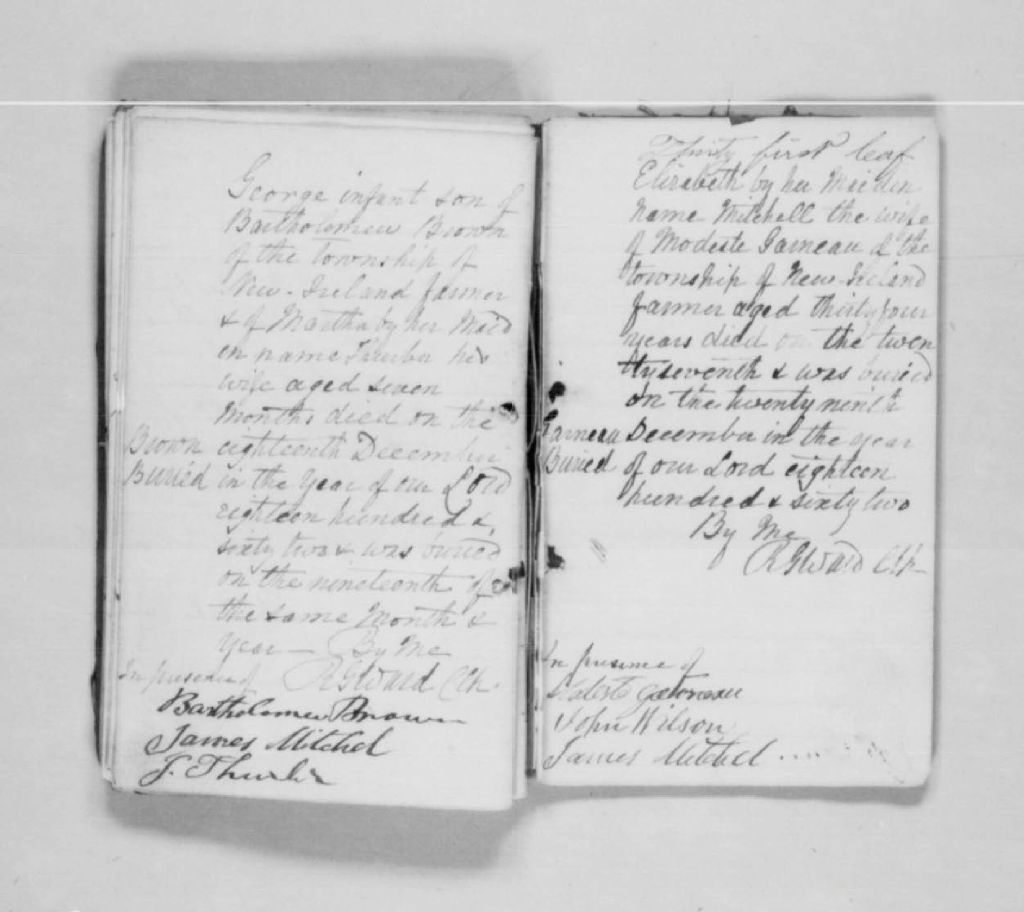 George infant son of
Bartholomew Brown
of the township of
New-Ireland farmer
& of Martha by her Maid
en name Thurber his
wife aged seven
Months died on the
Brown eighteenth December
Buried in the Year of our Lord
eighteen hundred &
sixty two & was buried
on the nineteenth of
the same Month &
Year — By Me
In presence of R G Ward Clk.
Bartholomew Brown
James Mitchel
J. Thurber
Thirty first leaf
Elizebeth by her Maiden
Name Mitchell the wife
of Modeste Garneau of the
township of New-Ireland
farmer aged thirty four
years died on the twen
ty seventh & was buried
on the twenty ninth
Garneau December in the year
Buried of our Lord eighteen
hundred & sixty two
By Me
R G Ward Clk
In presence of
John Wilson
James Mitchel